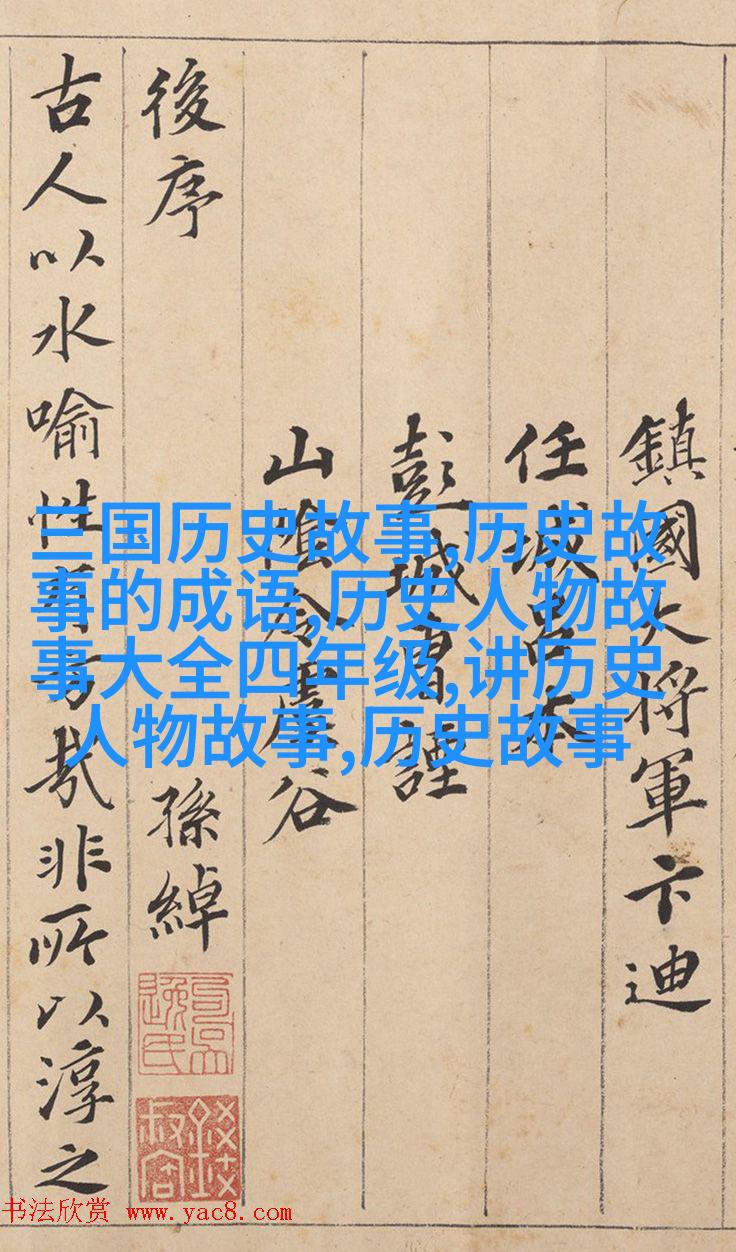 鎮國大将軍卞迪
任城呂本
彭城曹諲
山陰令虞谷
後序
孫綽
古人以水喻性有旨哉非所以淳之
三国历史故事,历史故
事的成语,历史人物故
事大全四年级,讲历史
人物故事,历史故事
书法欣赏 www.yac8.com